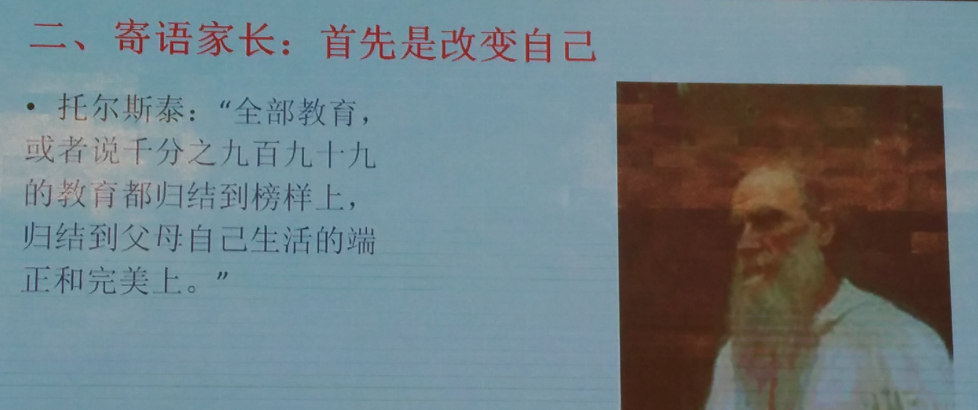 二、寄语家长：首先是改变自己
• 托尔斯泰：“全部教育，
或者说千分之九百九十九
的教育都归结到榜样上，
归结到父母自己生活的端
正和完美上。”